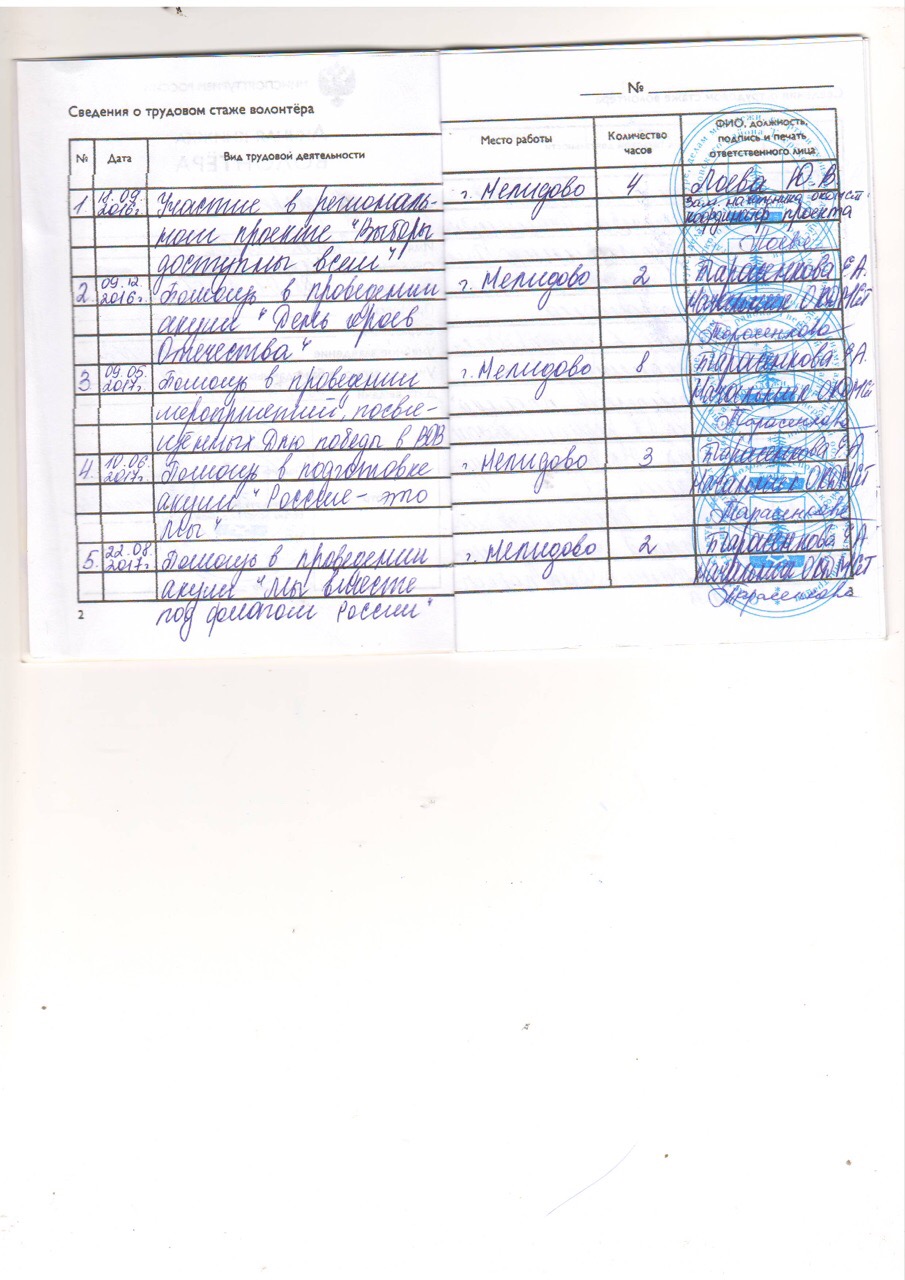 №
Сведения о трудовом стаже волонтёра
№ Дата Вид трудовой деятельности Место работы Количество часов ФИО, должность, подпись и печать ответственного лица
1 18.09. 2016г. Участие в регионально- г. Нелидово 4 Лоева Ю.В.
ном проекте "Выборы Зам. начальника
доступны всем" координатор проекта
Лоева
2 09.12. 2016г. Помощь в проведении г. Нелидово 2 Тарасенкова Е.А.
акции "День Героев Начальник
Отечества" Тарасенкова
3 09.05. 2017г. Помощь в проведении г. Нелидово 8 Тарасенкова Е.А.
мероприятий, посвя- Начальник
щенных Дню победы в ВОВ Тарасенкова
4. 10.06. 2017г. Помощь в подготовке г. Нелидово 3 Тарасенкова Е.А.
акции "Россия - это Начальник
мы" Тарасенкова
5. 22.08. 2017г. Помощь в проведении г. Нелидово 2 Тарасенкова Е.А.
акции "Мы вместе Начальник
под флагом России" Тарасенкова
2